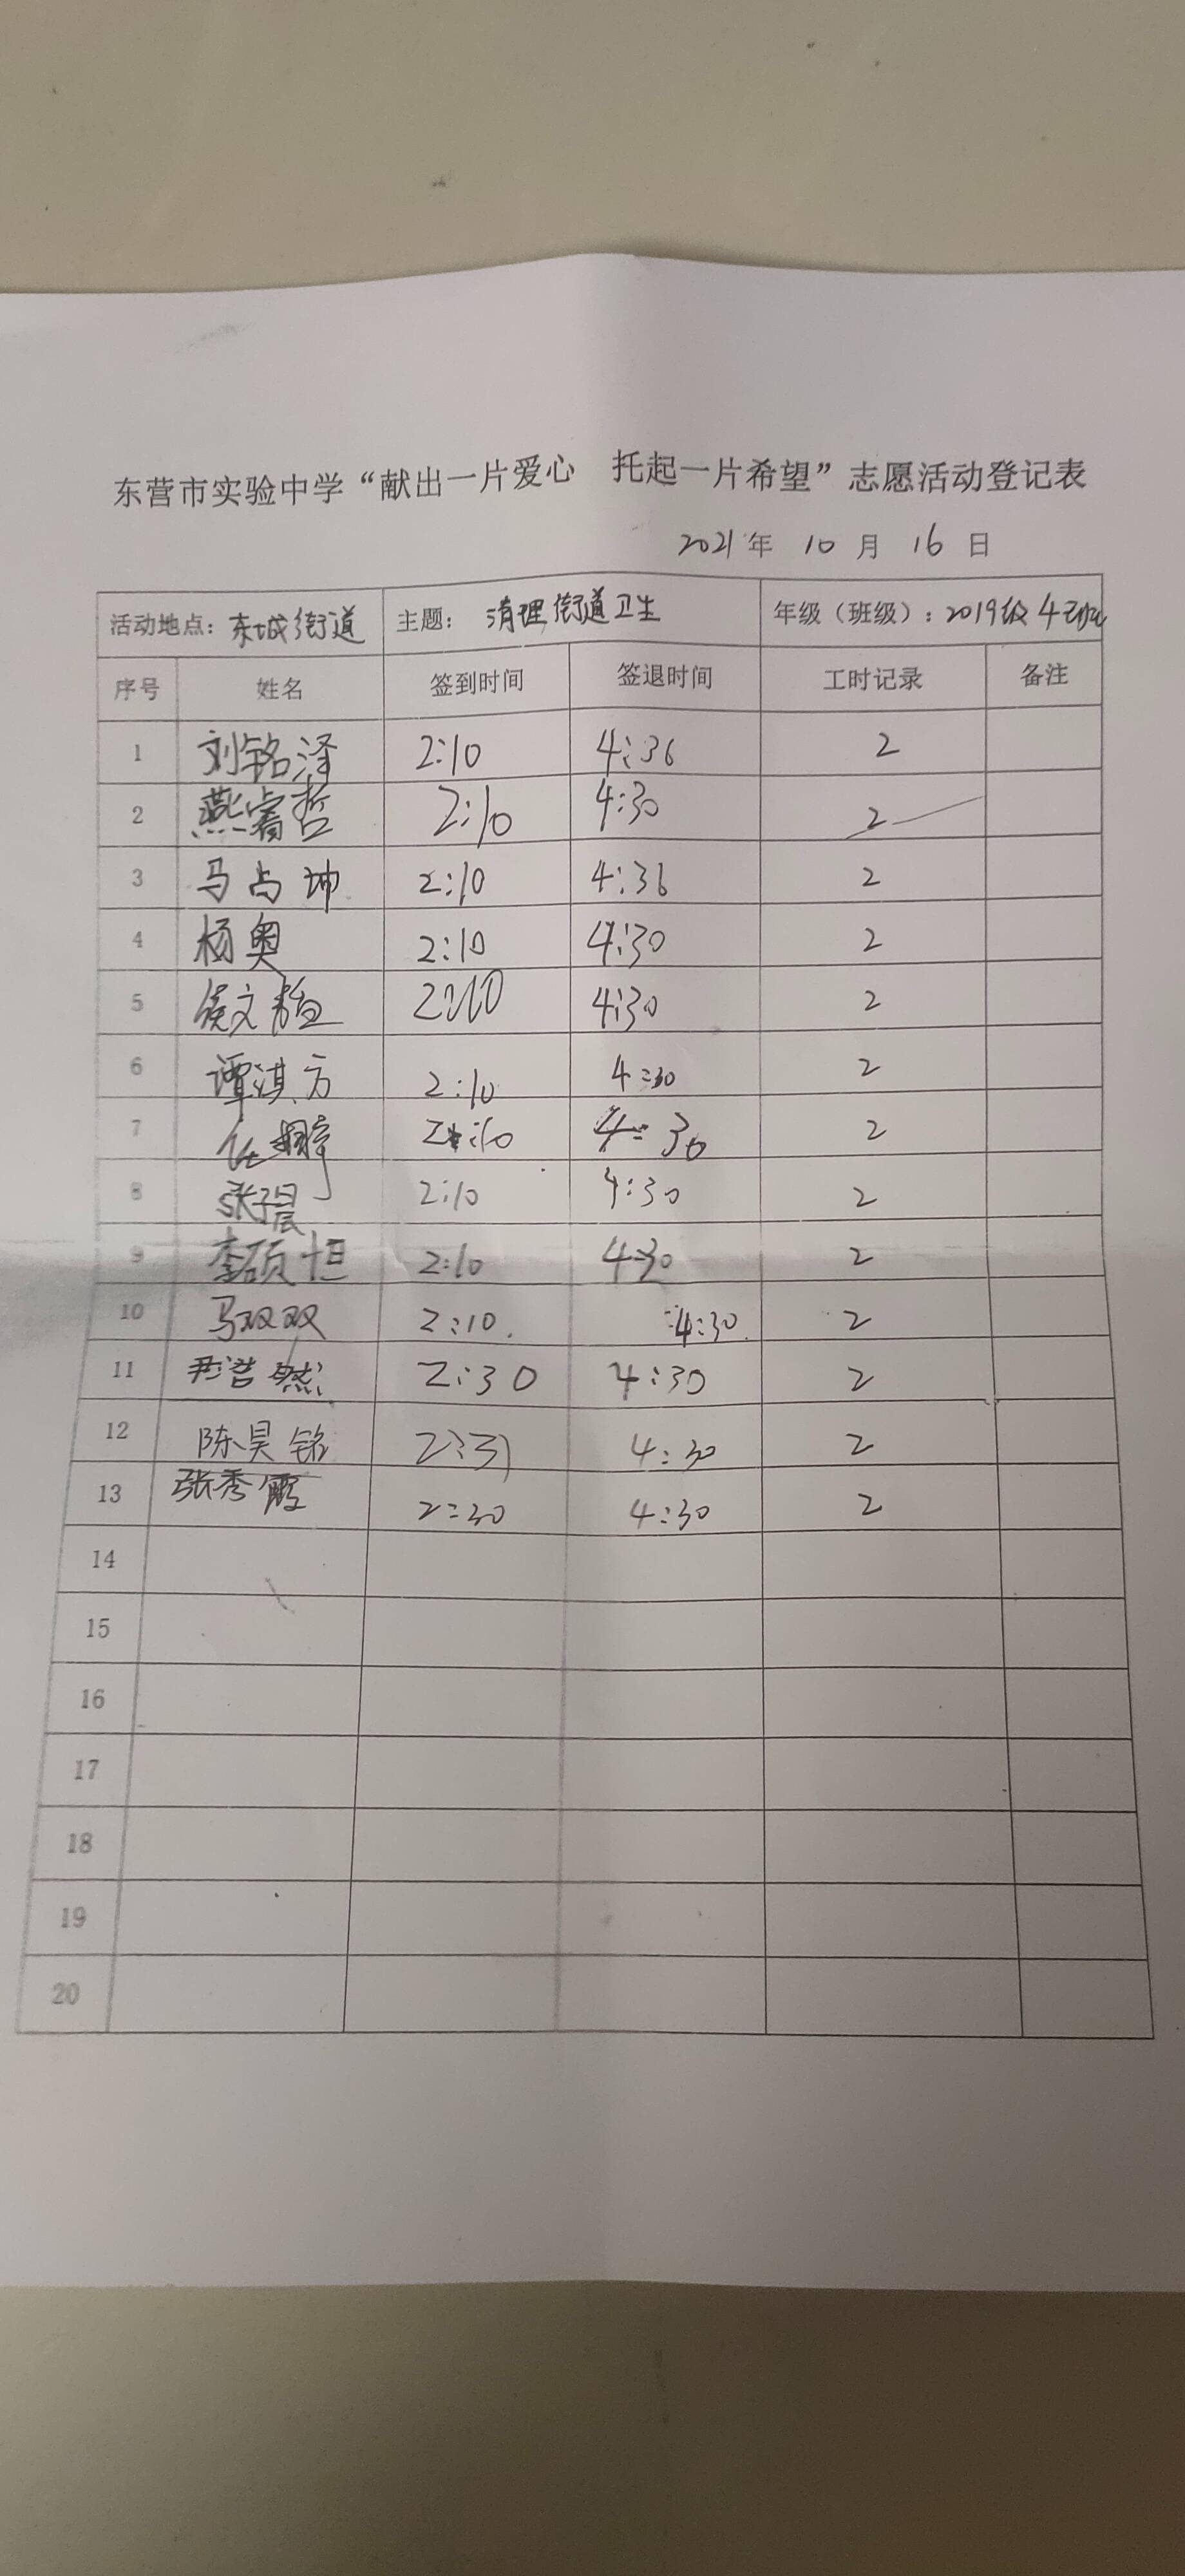 东营市实验中学“献出一片爱心 托起一片希望”志愿活动登记表
2021年 10 月 16 日
活动地点：东城街道 主题： 清理街道卫生 年级（班级）：2019级4班
序号 姓名 签到时间 签退时间 工时记录 备注
1 刘铭泽 2:10 4:36 2
2 燕睿哲 2:10 4:30 2
3 马占坤 2:10 4:36 2
4 杨奥 2:10 4:30 2
5 侯文 2:10 4:30 2
6 谭淇方 2:10 4:30 2
7 任 2:10 4:30 2
8 张子晨 2:10 4:30 2
9 李硕恒 2:10 4:30 2
10 马双双 2:10. 4:30. 2
11 尹浩然 2:30 4:30 2
12 陈昊铭 2:31 4:30 2
13 张秀霞 2:30 4:30 2
14
15
16
17
18
19
20